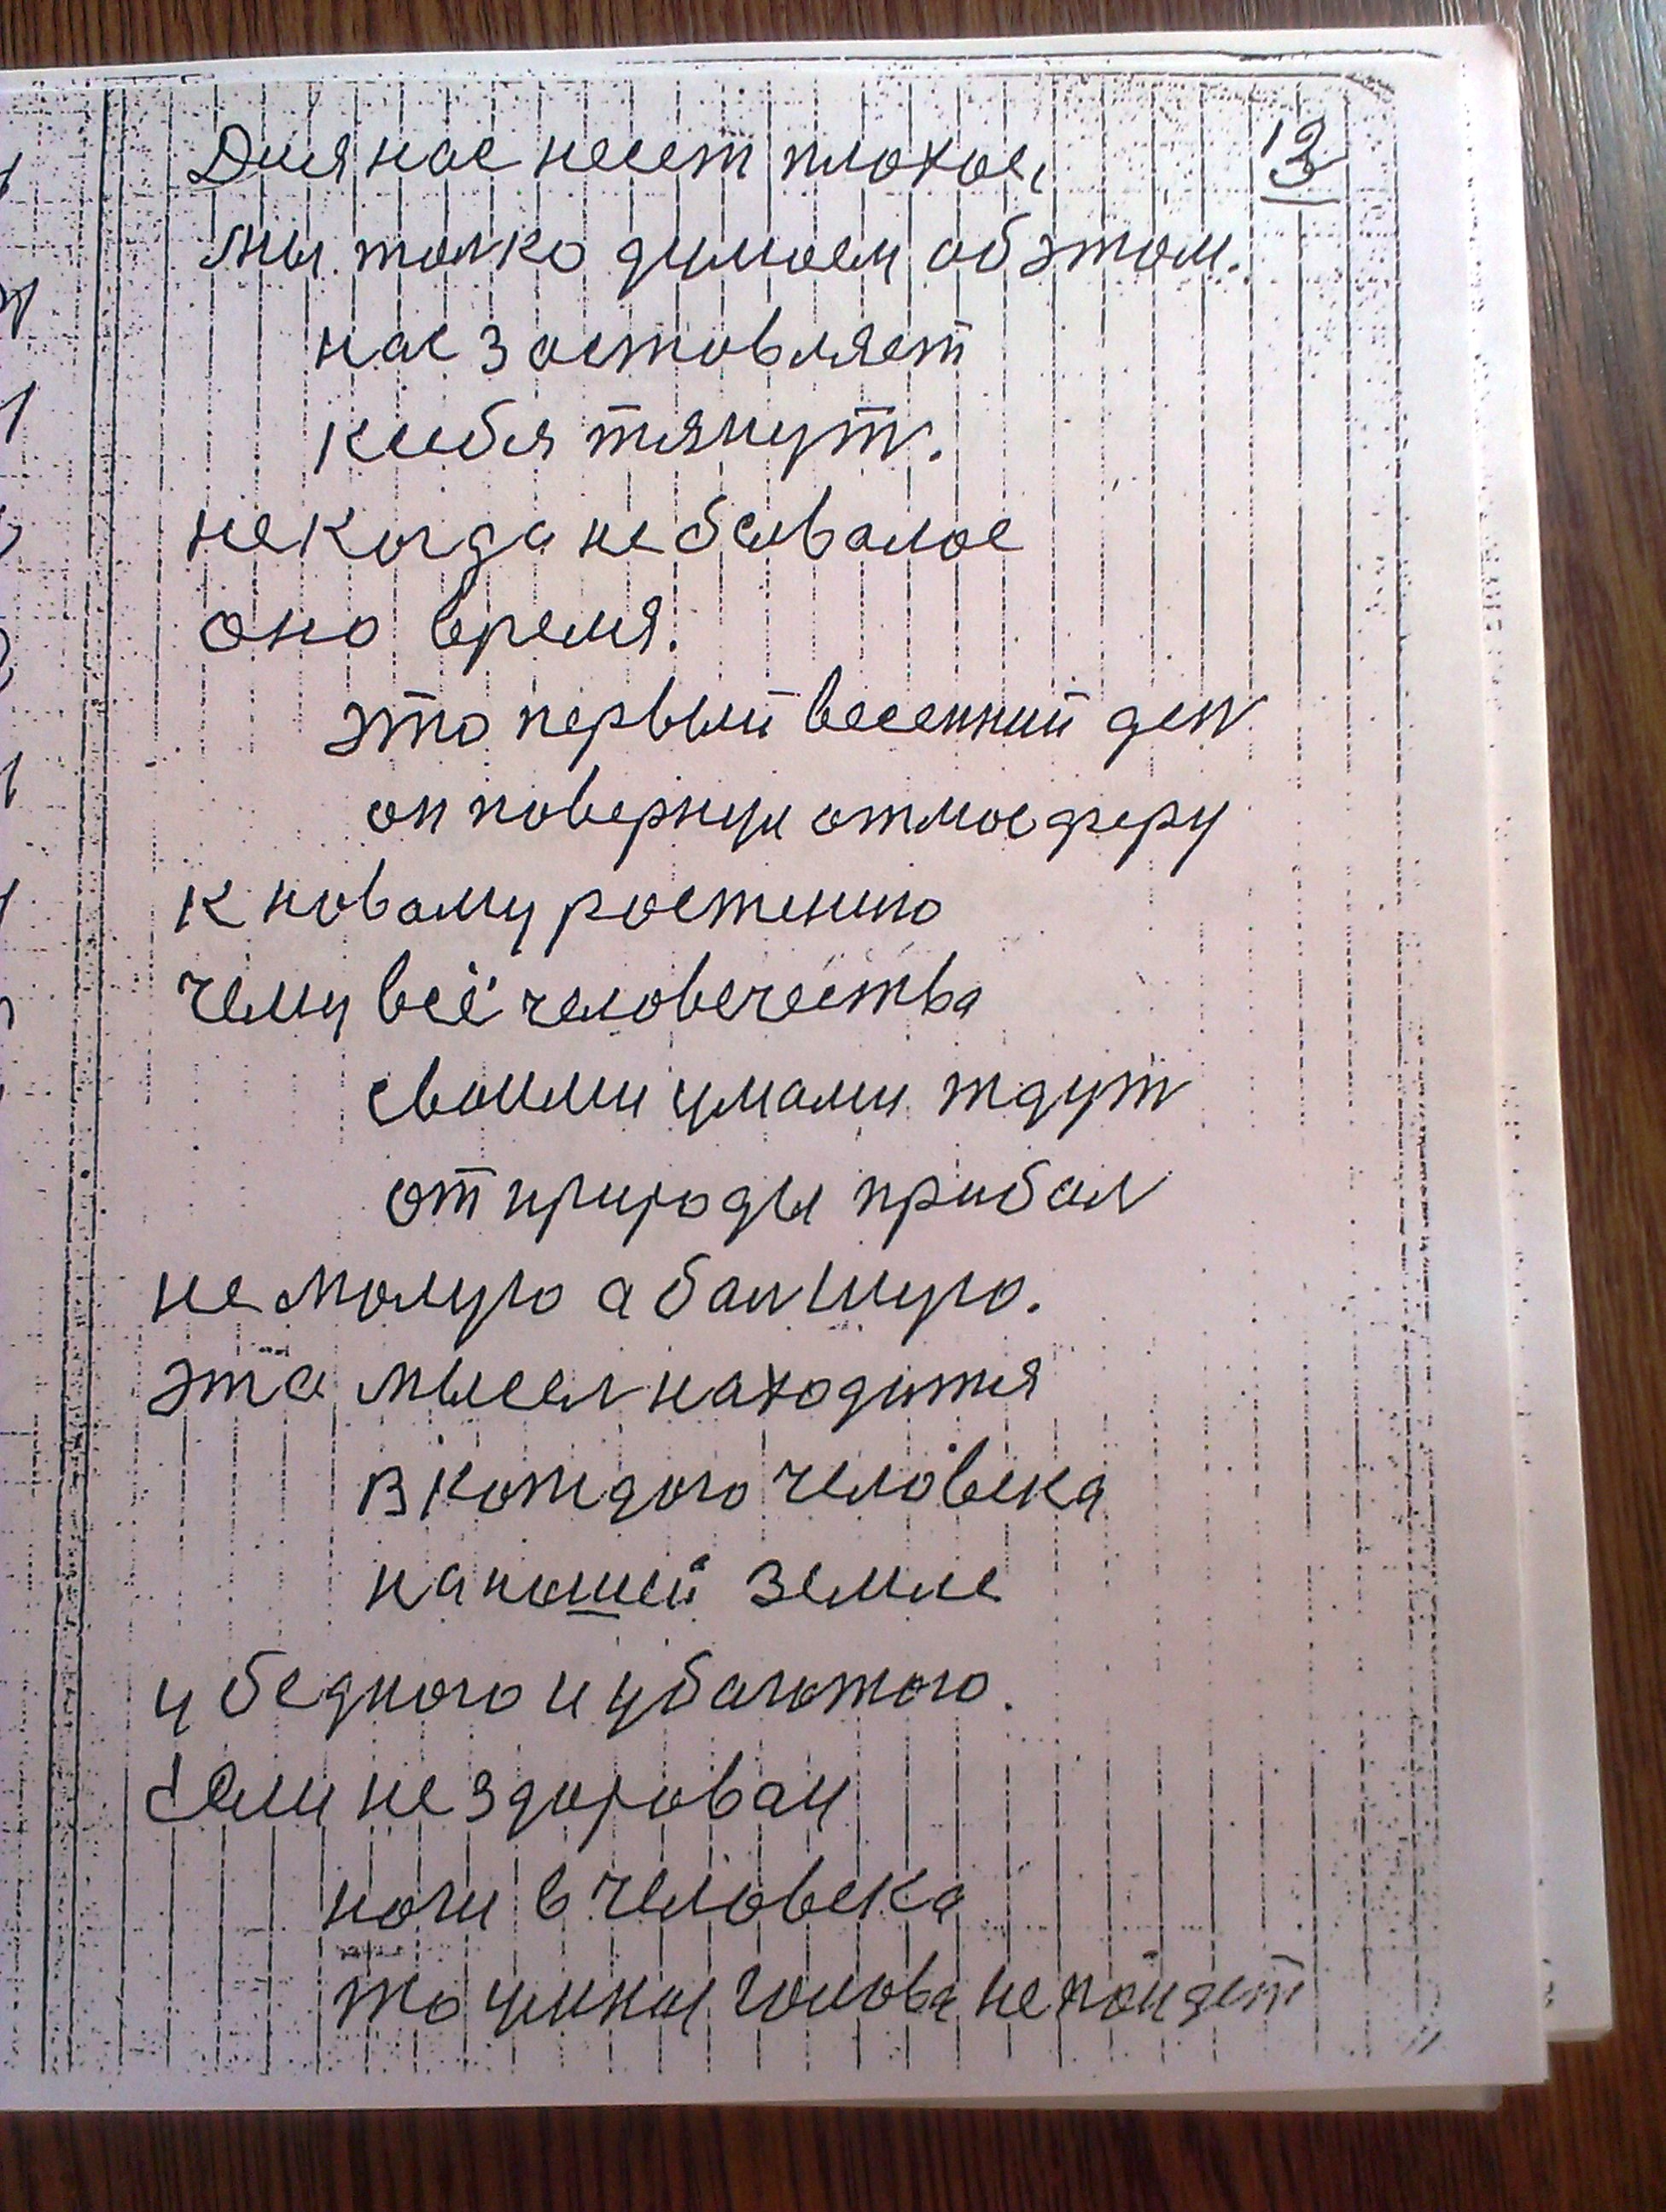 13
Для нас несет плохое,
мы толко думаем об этом.
нас заставляет
к себя тянут.
некогда не бывалое
оно время.
это первый весенний ден
он повернул отмосферу
к новаму ростению
чему всё человечества
своими умами ждут
от природы прибал
не малую а балшую.
эта мысел находится
в каждого человека
на нашей земле
у бедного и у багатого.
Если не здоровай
ноги в человека
то умнай голова не пойдет